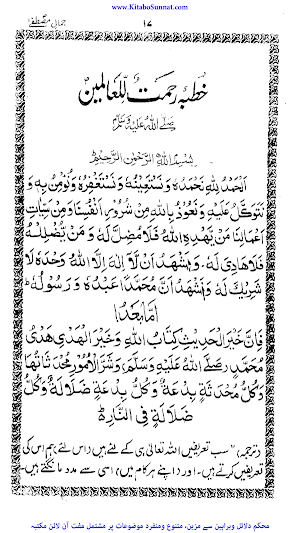 www.KitaboSunnat.com
جمالِ مصطفےٰ ۱۷
خطبہ رحمت للعالمین
صلے اللہ علیہ وسلم
بِسْمِ اللّٰهِ الرَّحْمٰنِ الرَّحِيْمِ
اَلْحَمْدُ لِلّٰهِ نَحْمَدُهٗ وَنَسْتَعِيْنُهٗ وَنَسْتَغْفِرُهٗ وَنُؤْمِنُ بِهٖ وَ
نَتَوَكَّلُ عَلَيْهِ وَنَعُوْذُ بِاللّٰهِ مِنْ شُرُوْرِ اَنْفُسِنَا وَمِنْ سَيِّاٰتِ
اَعْمَالِنَا مَنْ يَّهْدِهِ اللّٰهُ فَلَا مُضِلَّ لَهٗ وَمَنْ يُّضْلِلْهُ
فَلَا هَادِيَ لَهٗ۔ وَاَشْهَدُ اَنْ لَّا اِلٰهَ اِلَّا اللّٰهُ وَحْدَهٗ لَا
شَرِيْكَ لَهٗ وَاَشْهَدُ اَنَّ مُحَمَّدًا عَبْدُهٗ وَرَسُوْلُهٗ ط
اَمَّا بَعْدُ!
فَاِنَّ خَيْرَ الْحَدِيْثِ كِتَابُ اللّٰهِ وَخَيْرَ الْهَدْيِ هَدْيُ
مُحَمَّدٍ (صَلَّى اللّٰهُ عَلَيْهِ وَسَلَّمَ) وَشَرَّ الْاُمُوْرِ مُحْدَثَاتُهَا
وَكُلُّ مُحْدَثَةٍ بِدْعَةٌ وَكُلُّ بِدْعَةٍ ضَلَالَةٌ وَكُلُّ
ضَلَالَةٍ فِى النَّارِ ط
(ترجمہ) ”سب تعریفیں اللہ تعالیٰ ہی کے لئے ہیں (اس لئے) ہم اس کی
تعریفیں کرتے ہیں۔ اور (اپنے ہر کام میں) اسی سے مدد مانگتے ہیں۔
محکم دلائل وبراہین سے مزین، متنوع ومنفرد موضوعات پر مشتمل مفت آن لائن مکتبہ